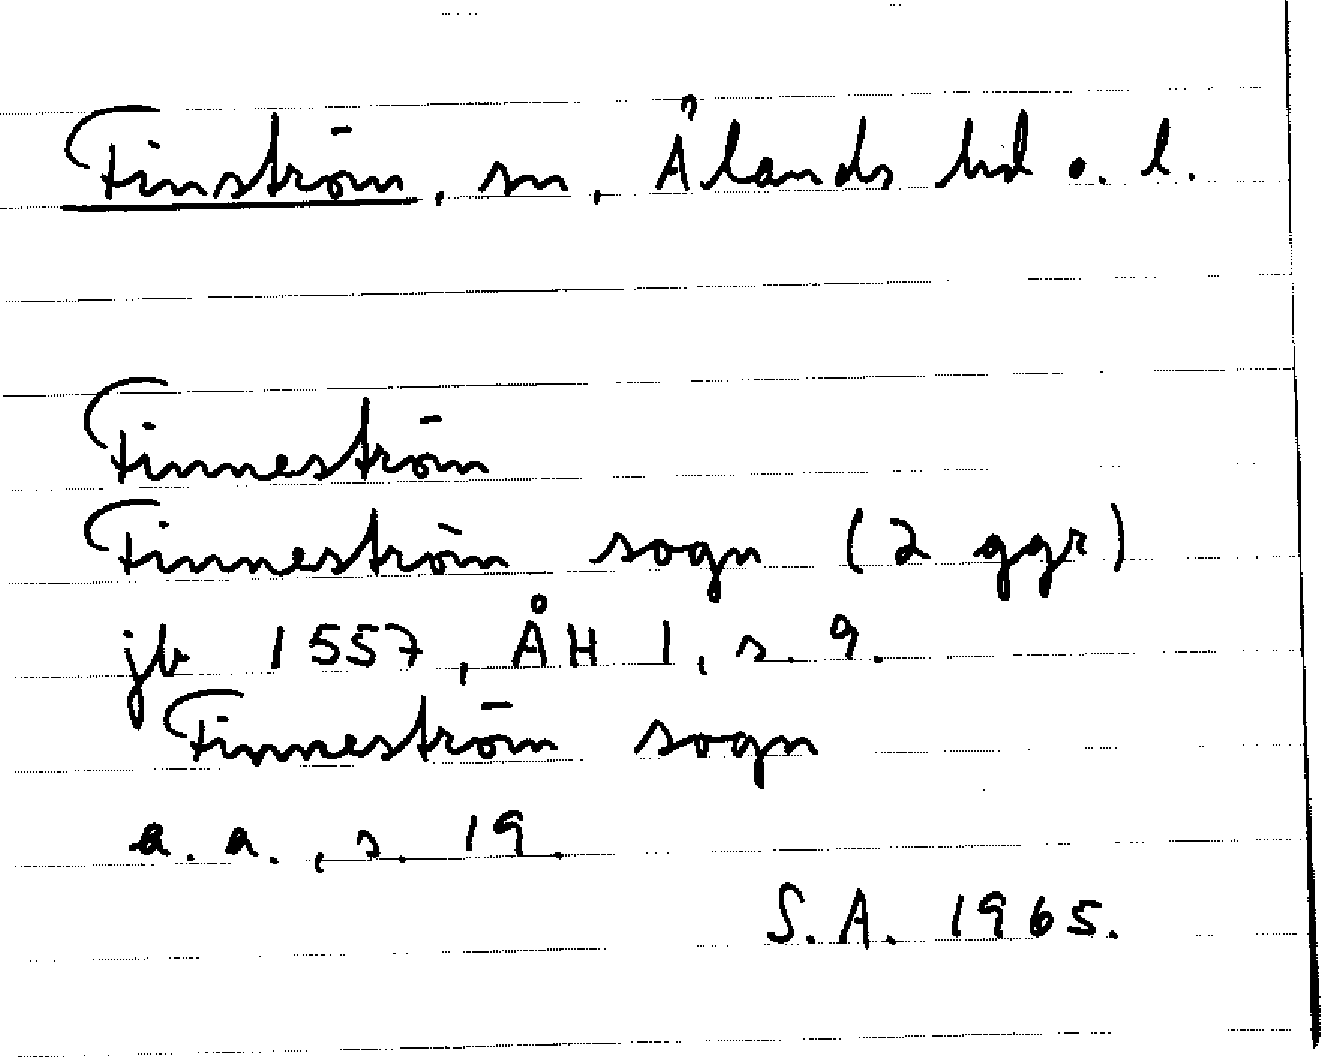 Finström, sn, Ålands hd o. l.
Finneström
Finneström sogn (2 ggr)
jb 1557, ÅH 1, s. 9.
Finneström sogn
a. a., s. 19.
S.A. 1965.